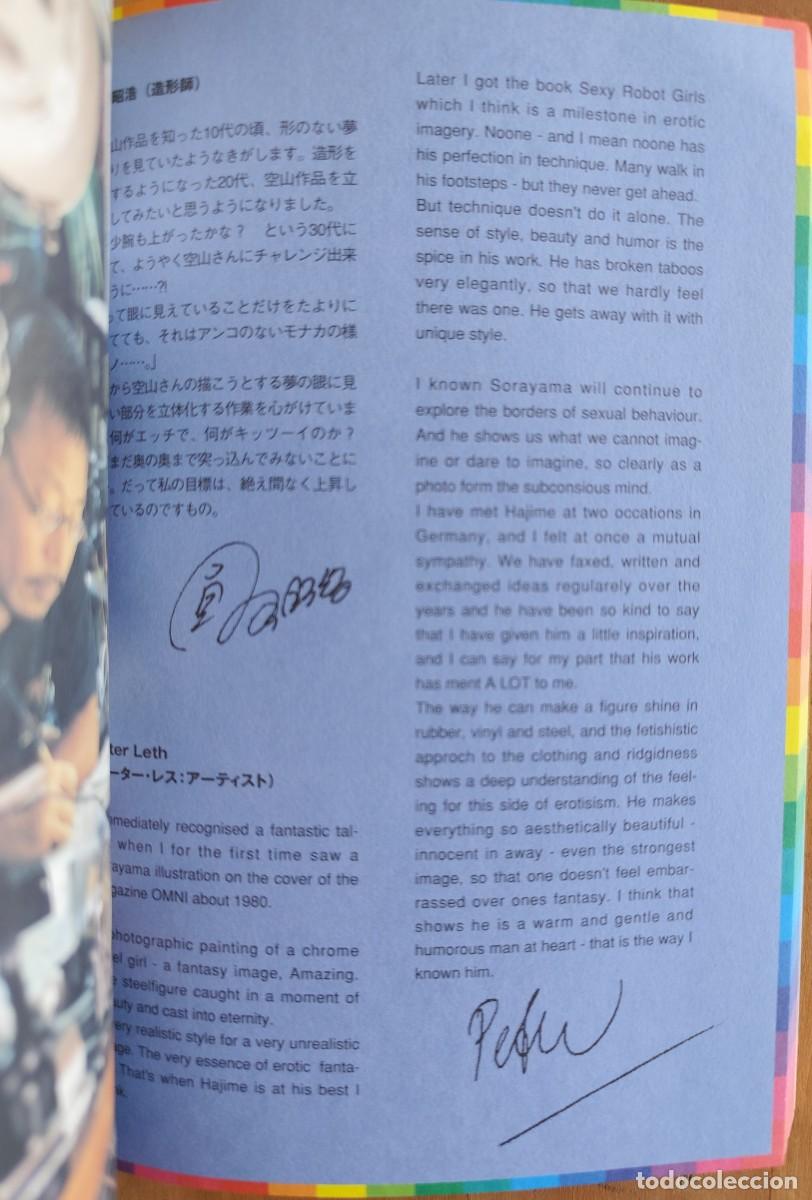 昭浩（造形師）
山作品を知った10代の頃、形のない夢
りを見ていたようなきがします。造形を
するようになった20代、空山作品を立
してみたいと思うようになりました。
少腕も上がったかな？　という30代に
て、ようやく空山さんにチャレンジ出来
うに……?!
って眼に見えていることだけをたよりに
てても、それはアンコのないモナカの様
ノ……。」
から空山さんの描こうとする夢の眼に見
い部分を立体化する作業を心がけていま
何がエッチで、何がキッツーイのか？
まだ奥の奥まで突っ込んでみないことに
。だって私の目標は、絶え間なく上昇し
ているのですもの。
ter Leth
ーター・レス：アーティスト）
mmediately recognised a fantastic tal-
when I for the first time saw a
ayama illustration on the cover of the
gazine OMNI about 1980.
photographic painting of a chrome
el girl - a fantasy image, Amazing.
e steelfigure caught in a moment of
auty and cast into eternity.
ery realistic style for a very unrealistic
age. The very essence of erotic fanta-
That's when Hajime is at his best I
nk.
Later I got the book Sexy Robot Girls
which I think is a milestone in erotic
imagery. Noone - and I mean noone has
his perfection in technique. Many walk in
his footsteps - but they never get ahead.
But technique doesn't do it alone. The
sense of style, beauty and humor is the
spice in his work. He has broken taboos
very elegantly, so that we hardly feel
there was one. He gets away with it with
unique style.
I known Sorayama will continue to
explore the borders of sexual behaviour.
And he shows us what we cannot imag-
ine or dare to imagine, so clearly as a
photo form the subconsious mind.
I have met Hajime at two occations in
Germany, and I felt at once a mutual
sympathy. We have faxed, written and
exchanged ideas regularely over the
years and he have been so kind to say
that I have given him a little inspiration,
and I can say for my part that his work
has ment A LOT to me.
The way he can make a figure shine in
rubber, vinyl and steel, and the fetishistic
approch to the clothing and ridgidness
shows a deep understanding of the feel-
ing for this side of erotisism. He makes
everything so aesthetically beautiful -
innocent in away - even the strongest
image, so that one doesn't feel embar-
rassed over ones fantasy. I think that
shows he is a warm and gentle and
humorous man at heart - that is the way I
known him.
todocoleccion